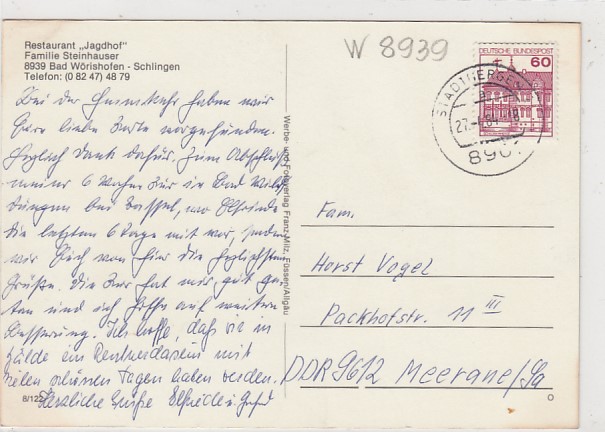 Restaurant „Jagdhof"
Familie Steinhauser
8939 Bad Wörishofen - Schlingen
Telefon: (0 82 47) 48 79
W 8939
DEUTSCHE BUNDESPOST
60
STADTBERGEN
27. 84
890
Bei der Heimkehr haben wir
Eure liebe Karte vorgefunden.
Herzlich Dank dafür. Zum Abschluß
meiner 6 Wochen Kur in Bad Wil
dungen bei Kassel, wo Elfriede
die letzten 6 Tage mit war, senden
wir Euch von hier die herzlichsten
Grüße. Die Kur hat mir gut ge
tan und ich hoffe auf weitere
Besserung. Ich hoffe, daß sie in
Bälde ein Rentnerdasein mit
vielen schönen Tagen haben werden.
Herzliche Grüße Elfriede u.
Werbe- und Fotoverlag Franz Milz, Füssen/Allgäu
Fam.
Horst Vogel
Packhofstr. 11 III
DDR 9612 Meerane/Sa
8/122